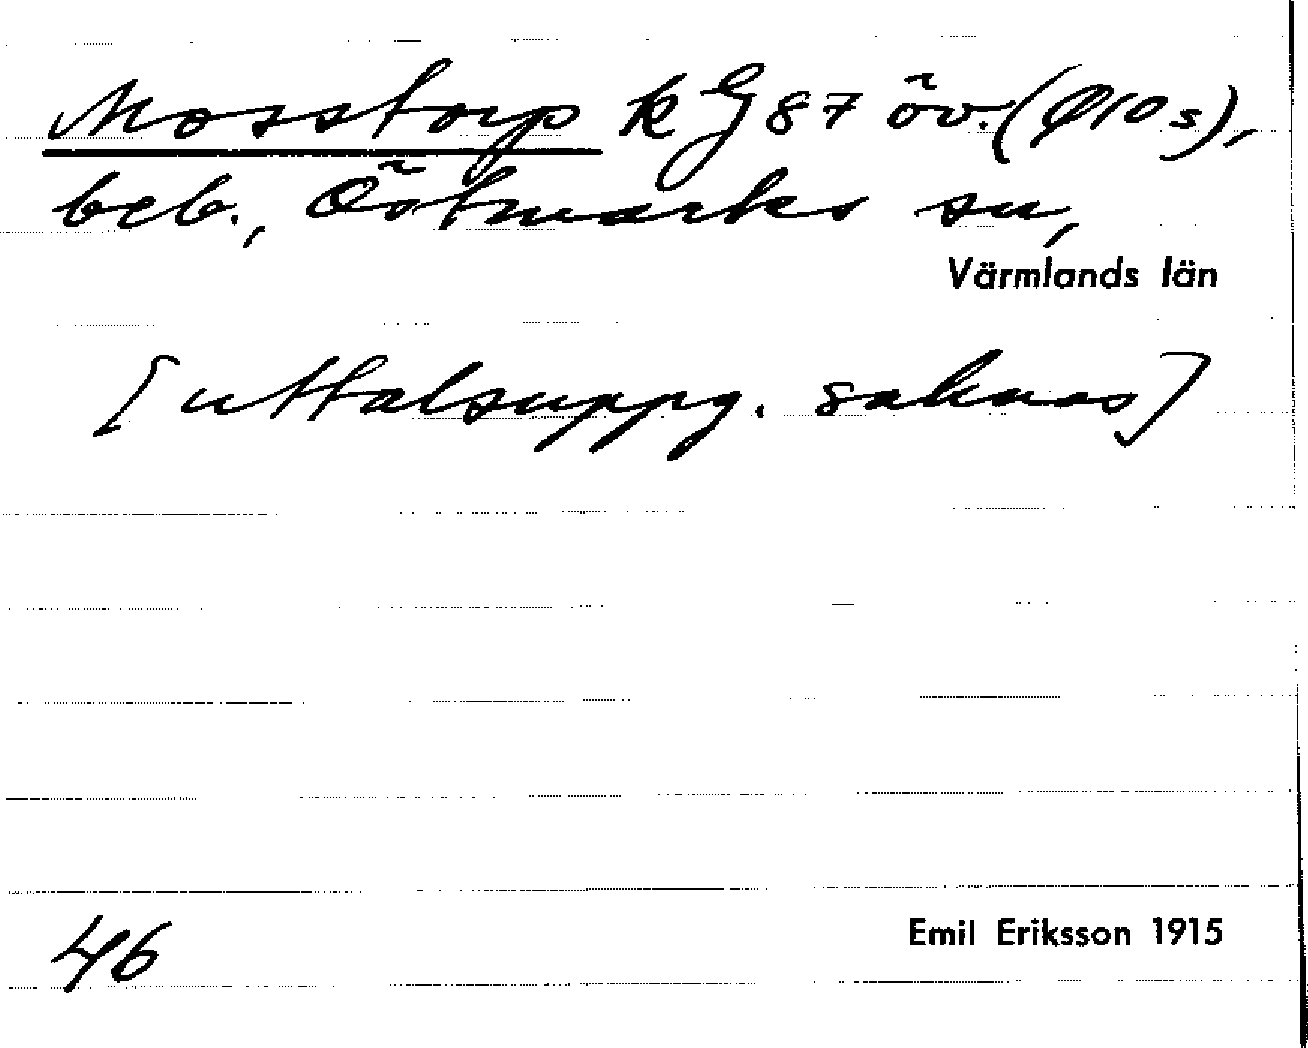 Mosstorp k G 87 öv. (Ø10 s),
beb., Östmarks sn,
Värmlands län
[uttalsuppg. saknas]
46
Emil Eriksson 1915